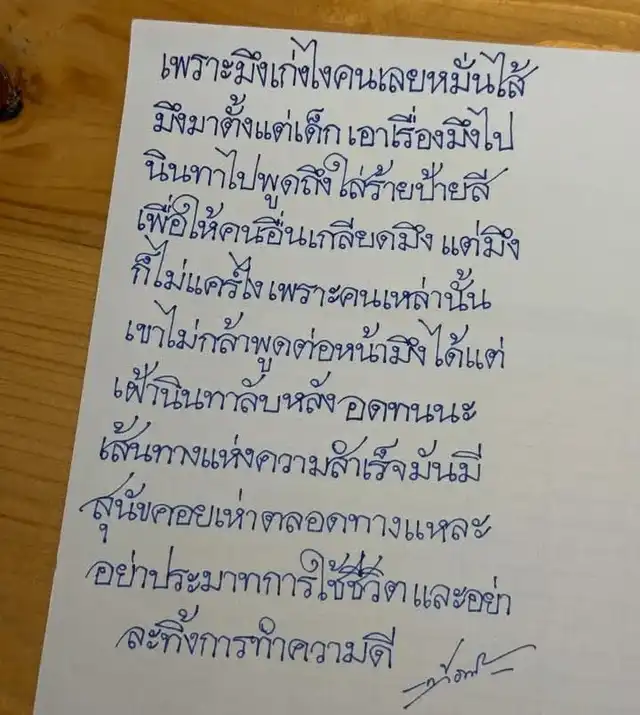 เพราะมึงเก่งไงคนเลยหมั่นไส้
มึงมาตั้งแต่เด็ก เอาเรื่องมึงไป
นินทาไปพูดถึงใส่ร้ายป้ายสี
เพื่อให้คนอื่นเกลียดมึง แต่มึง
ก็ไม่แคร์ไง เพราะคนเหล่านั้น
เขาไม่กล้าพูดต่อหน้ามึงได้แต่
เฝ้านินทาลับหลัง อดทนนะ
เส้นทางแห่งความสำเร็จมันมี
สุนัขคอยเห่าตลอดทางแหละ
อย่าประมาทการใช้ชีวิต และอย่า
ละทิ้งการทำความดี